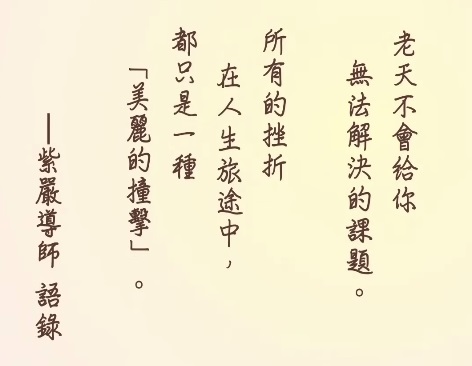 老天不會給你
無法解決的課題。
所有的挫折
在人生旅途中，
都只是一種
「美麗的撞擊」。
—紫嚴導師 語錄